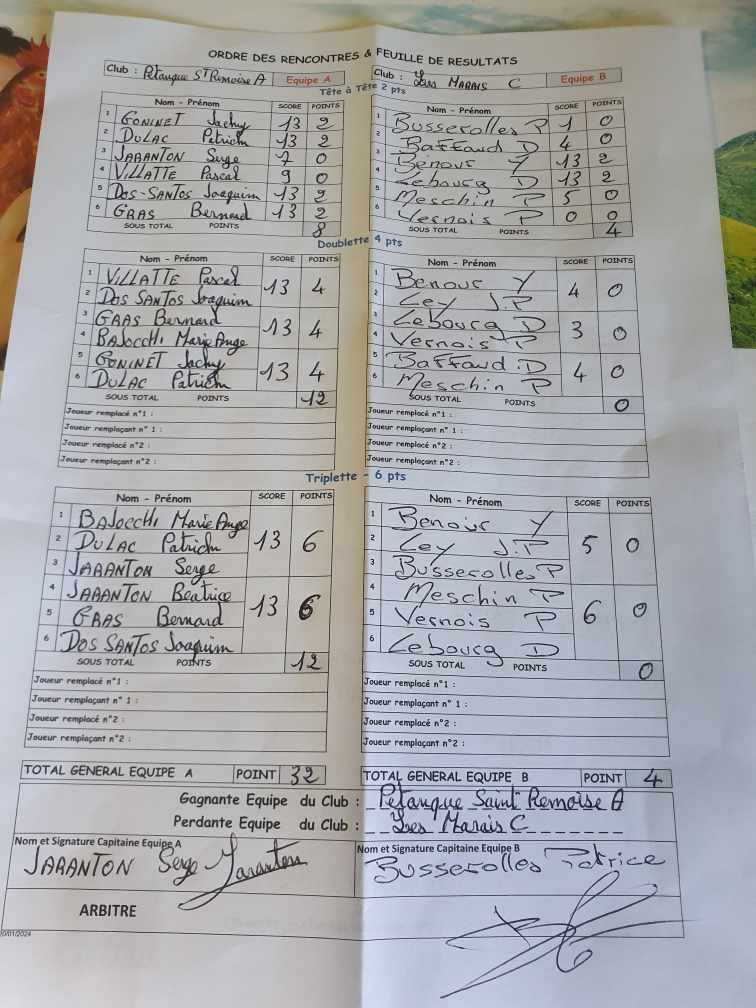 ORDRE DES RENCONTRES & FEUILLE DE RESULTATS
Club : Pétanque St Remoise A Equipe A Club : Les MARAIS C Equipe B
Tête à Tête 2 pts
Nom - Prénom SCORE POINTS Nom - Prénom SCORE POINTS
1 GONINET Jacky 13 2 1 Busserolles P 1 0
2 DULAC Patrick 13 2 2 Baffaud D 4 0
3 JARANTON Serge 7 0 3 Benour Y 13 2
4 VILLATTE Pascal 9 0 4 Lebourg D 13 2
5 DOS-SANTOS Joaquim 13 2 5 Meschin P 5 0
6 GRAS Bernard 13 2 6 Vernois P 0 0
SOUS TOTAL POINTS 8 SOUS TOTAL POINTS 4
Doublette 4 pts
Nom - Prénom SCORE POINTS Nom - Prénom SCORE POINTS
1 VILLATTE Pascal 13 4 1 Benour Y 4 0
2 DOS SANTOS Joaquim 2 Ley J.P
3 GRAS Bernard 13 4 3 Lebourg D 3 0
4 BAJOCCHI Marie Ange 4 Vernois P
5 GONINET Jacky 13 4 5 Baffaud D 4 0
6 DULAC Patrick 6 Meschin P
SOUS TOTAL POINTS 12 SOUS TOTAL POINTS 0
Joueur remplacé n°1 : Joueur remplacé n°1 :
Joueur remplaçant n° 1 : Joueur remplaçant n° 1 :
Joueur remplacé n°2 : Joueur remplacé n°2 :
Joueur remplaçant n°2 : Joueur remplaçant n°2 :
Triplette - 6 pts
Nom - Prénom SCORE POINTS Nom - Prénom SCORE POINTS
1 BAJOCCHI Marie Ange 13 6 1 Benour Y 5 0
2 DULAC Patrick 2 Ley J.P
3 JARANTON Serge 3 Busserolles P
4 JARANTON Béatrice 13 6 4 Meschin P 6 0
5 GRAS Bernard 5 Vernois P
6 DOS SANTOS Joaquim 6 Lebourg D
SOUS TOTAL POINTS 12 SOUS TOTAL POINTS 0
Joueur remplacé n°1 : Joueur remplacé n°1 :
Joueur remplaçant n° 1 : Joueur remplaçant n° 1 :
Joueur remplacé n°2 : Joueur remplacé n°2 :
Joueur remplaçant n°2 : Joueur remplaçant n°2 :
TOTAL GENERAL EQUIPE A POINT 32 TOTAL GENERAL EQUIPE B POINT 4
Gagnante Equipe du Club : Pétanque Saint Remoise A
Perdante Equipe du Club : Les Marais C
Nom et Signature Capitaine Equipe A Nom et Signature Capitaine Equipe B
JARANTON Serge Jaranton Busserolles Patrice
ARBITRE
0/01/2024